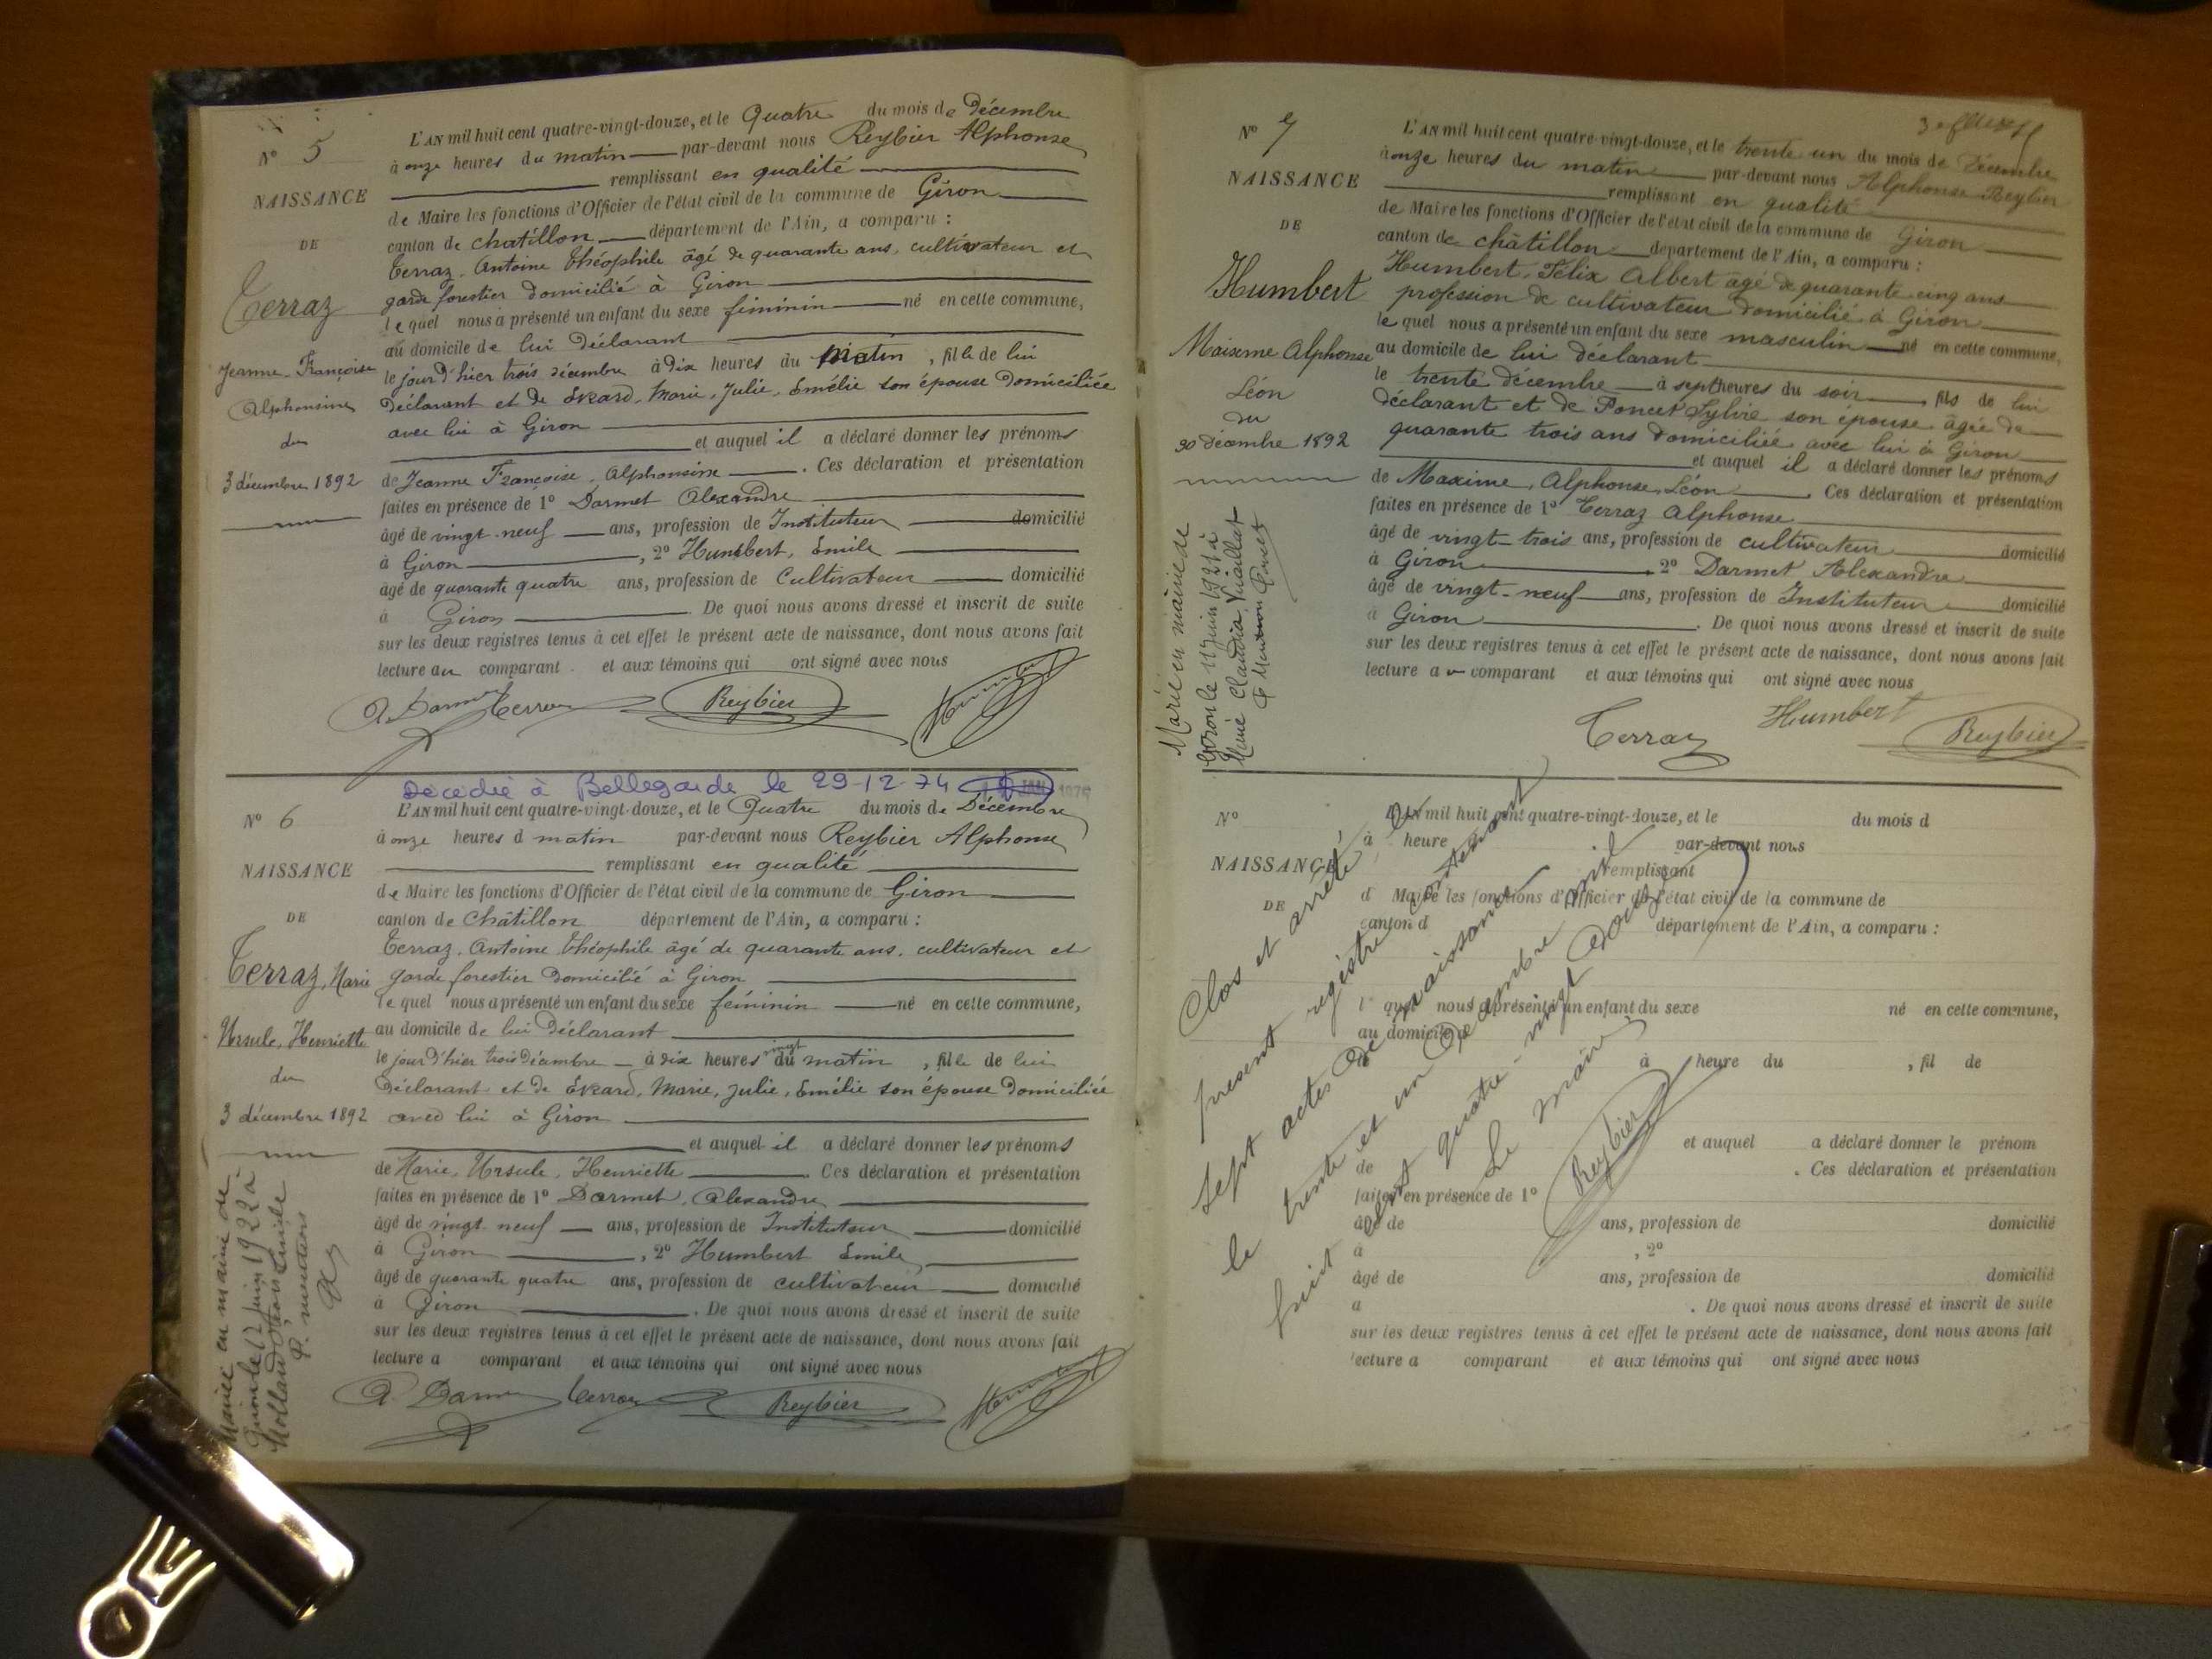 Nº 5
NAISSANCE
DE
Terraz
Jeanne-Françoise
Alphonsine
du
3 décembre 1892
L'AN mil huit cent quatre-vingt-douze, et le Quatre du mois de Décembre
à onze heures du matin par-devant nous Reybier Alphonse
remplissant en qualité
de Maire les fonctions d'Officier de l'état civil de la commune de Giron
canton de chatillon département de l'Ain, a comparu :
Terraz, Antoine Théophile âgé de quarante ans, cultivateur et
garde forestier domicilié à Giron
lequel nous a présenté un enfant du sexe féminin né en cette commune,
au domicile de lui déclarant
le jour d'hier trois décembre à dix heures du matin, fille de lui
déclarant et de Ekard, Marie, Julie, Emélie son épouse domiciliée
avec lui à Giron
et auquel il a déclaré donner les prénoms
de Jeanne Françoise, Alphonsine. Ces déclaration et présentation
faites en présence de 1º Darmet Alexandre
âgé de vingt-neuf ans, profession de Instituteur domicilié
à Giron, 2º Humbert, Emile
âgé de quarante quatre ans, profession de Cultivateur domicilié
à Giron. De quoi nous avons dressé et inscrit de suite
sur les deux registres tenus à cet effet le présent acte de naissance, dont nous avons fait
lecture au comparant et aux témoins qui ont signé avec nous
A. Darmet Terraz Reybier Humbert
Décédée à Bellegarde le 29-12-74
Nº 6
NAISSANCE
DE
Terraz, Marie
Ursule, Henriette
du
3 décembre 1892
Mariée en mairie de
Giron le 17 juin 1922 à
L'AN mil huit cent quatre-vingt-douze, et le Quatre du mois de Décembre
à onze heures d matin par-devant nous Reybier Alphonse
remplissant en qualité
de Maire les fonctions d'Officier de l'état civil de la commune de Giron
canton de Châtillon département de l'Ain, a comparu :
Terraz, Antoine Théophile âgé de quarante ans, cultivateur et
garde forestier domicilié à Giron
lequel nous a présenté un enfant du sexe féminin né en cette commune,
au domicile de lui déclarant
le jour d'hier trois décembre à dix heures vingt du matin, fille de lui
déclarant et de Ekard, Marie, Julie, Emélie son épouse domiciliée
avec lui à Giron
et auquel il a déclaré donner les prénoms
de Marie, Ursule, Henriette. Ces déclaration et présentation
faites en présence de 1º Darmet, Alexandre
âgé de vingt neuf ans, profession de Instituteur domicilié
à Giron, 2º Humbert Emile
âgé de quarante quatre ans, profession de cultivateur domicilié
à Giron. De quoi nous avons dressé et inscrit de suite
sur les deux registres tenus à cet effet le présent acte de naissance, dont nous avons fait
lecture a comparant et aux témoins qui ont signé avec nous
A. Darmet Terraz Reybier Humbert
Nº 7
NAISSANCE
DE
Humbert
Maixme Alphonse
Léon
du
30 décembre 1892
Marié en mairie de
L'AN mil huit cent quatre-vingt-douze, et le trente un du mois de Décembre
à onze heures du matin par-devant nous Alphonse Reybier
remplissant en qualité
de Maire les fonctions d'Officier de l'état civil de la commune de Giron
canton de châtillon département de l'Ain, a comparu :
Humbert, Félix Albert âgé de quarante cinq ans
profession de cultivateur domicilié à Giron
lequel nous a présenté un enfant du sexe masculin né en cette commune,
au domicile de lui déclarant
le trente décembre à sept heures du soir, fils de lui
déclarant et de Poncet Sylvie son épouse âgée de
quarante trois ans domiciliée avec lui à Giron
et auquel il a déclaré donner les prénoms
de Maxime, Alphonse, Léon. Ces déclaration et présentation
faites en présence de 1º Terraz Alphonse
âgé de vingt-trois ans, profession de cultivateur domicilié
à Giron 2º Darmet Alexandre
âgé de vingt-neuf ans, profession de Instituteur domicilié
à Giron. De quoi nous avons dressé et inscrit de suite
sur les deux registres tenus à cet effet le présent acte de naissance, dont nous avons fait
lecture au comparant et aux témoins qui ont signé avec nous
Terraz Humbert Reybier
Nº
NAISSANCE
DE
L'AN mil huit cent quatre-vingt-douze, et le du mois d
à heure d par-devant nous
remplissant
d Maire les fonctions d'Officier de l'état civil de la commune de
canton d département de l'Ain, a comparu :
l quel nous a présenté un enfant du sexe né en cette commune,
au domicile de
le à heure du , fil de
et auquel a déclaré donner le prénom
de . Ces déclaration et présentation
faites en présence de 1º
âgé de ans, profession de domicilié
à , 2º
âgé de ans, profession de domicilié
à . De quoi nous avons dressé et inscrit de suite
sur les deux registres tenus à cet effet le présent acte de naissance, dont nous avons fait
lecture a comparant et aux témoins qui ont signé avec nous
Clos et arrêté le
présent registre contenant
sept actes de naissance
le trente et un Décembre mil
huit cent quatre-vingt douze
Le Maire,
Reybier